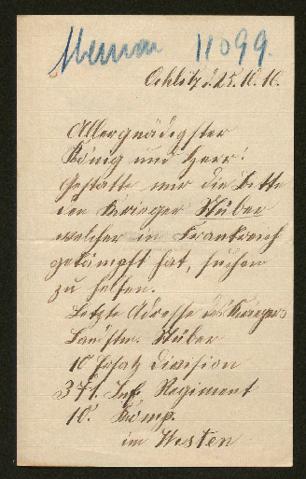 11099.
d. 25.10.16.
Allergnädigster
König und Herr!
Gestatte mir die Bitte
den Krieger Stüber
welcher in Frankreich
gekämpft hat, suchen
zu helfen.
Letzte Adresse des Kriegers
Stüber
10 Ersatz Division
371. Inf. Regiment
10. Komp.
im Westen